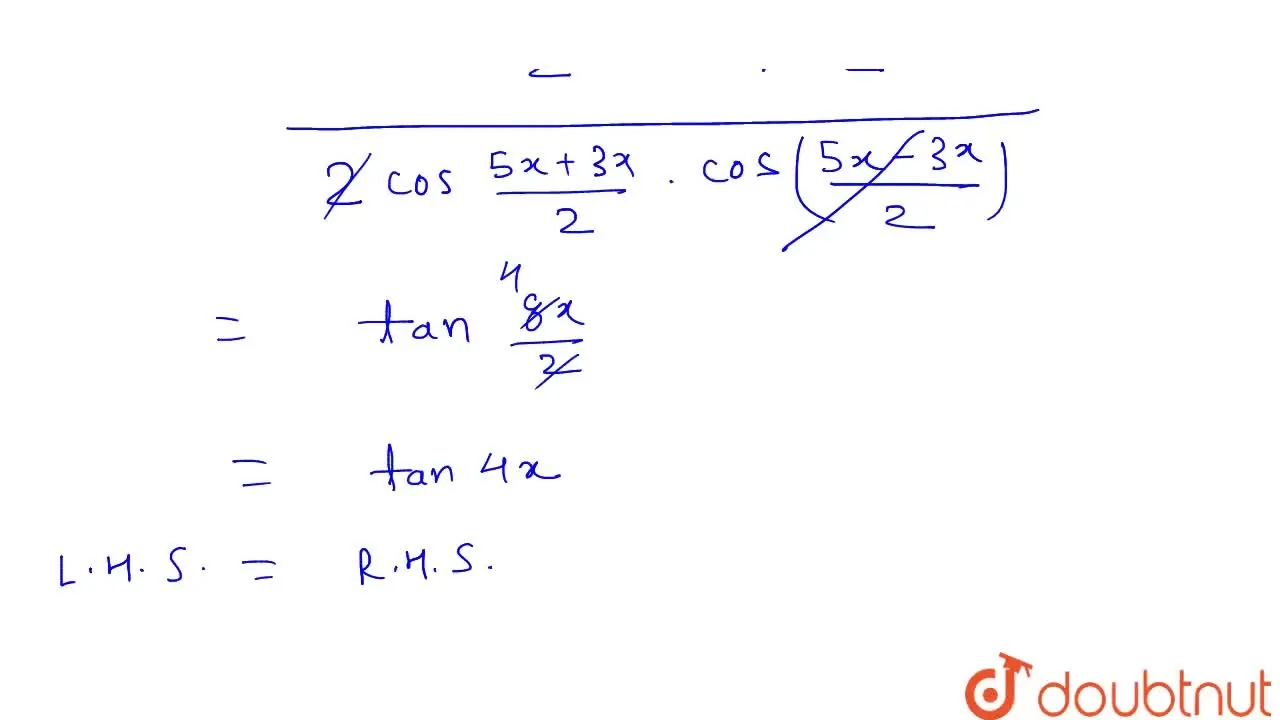 2 cos 5x + 3x / 2 . cos ( 5x - 3x / 2 )
= tan 4 8x / 2
= tan 4x
L.H.S. = R.H.S.
doubtnut